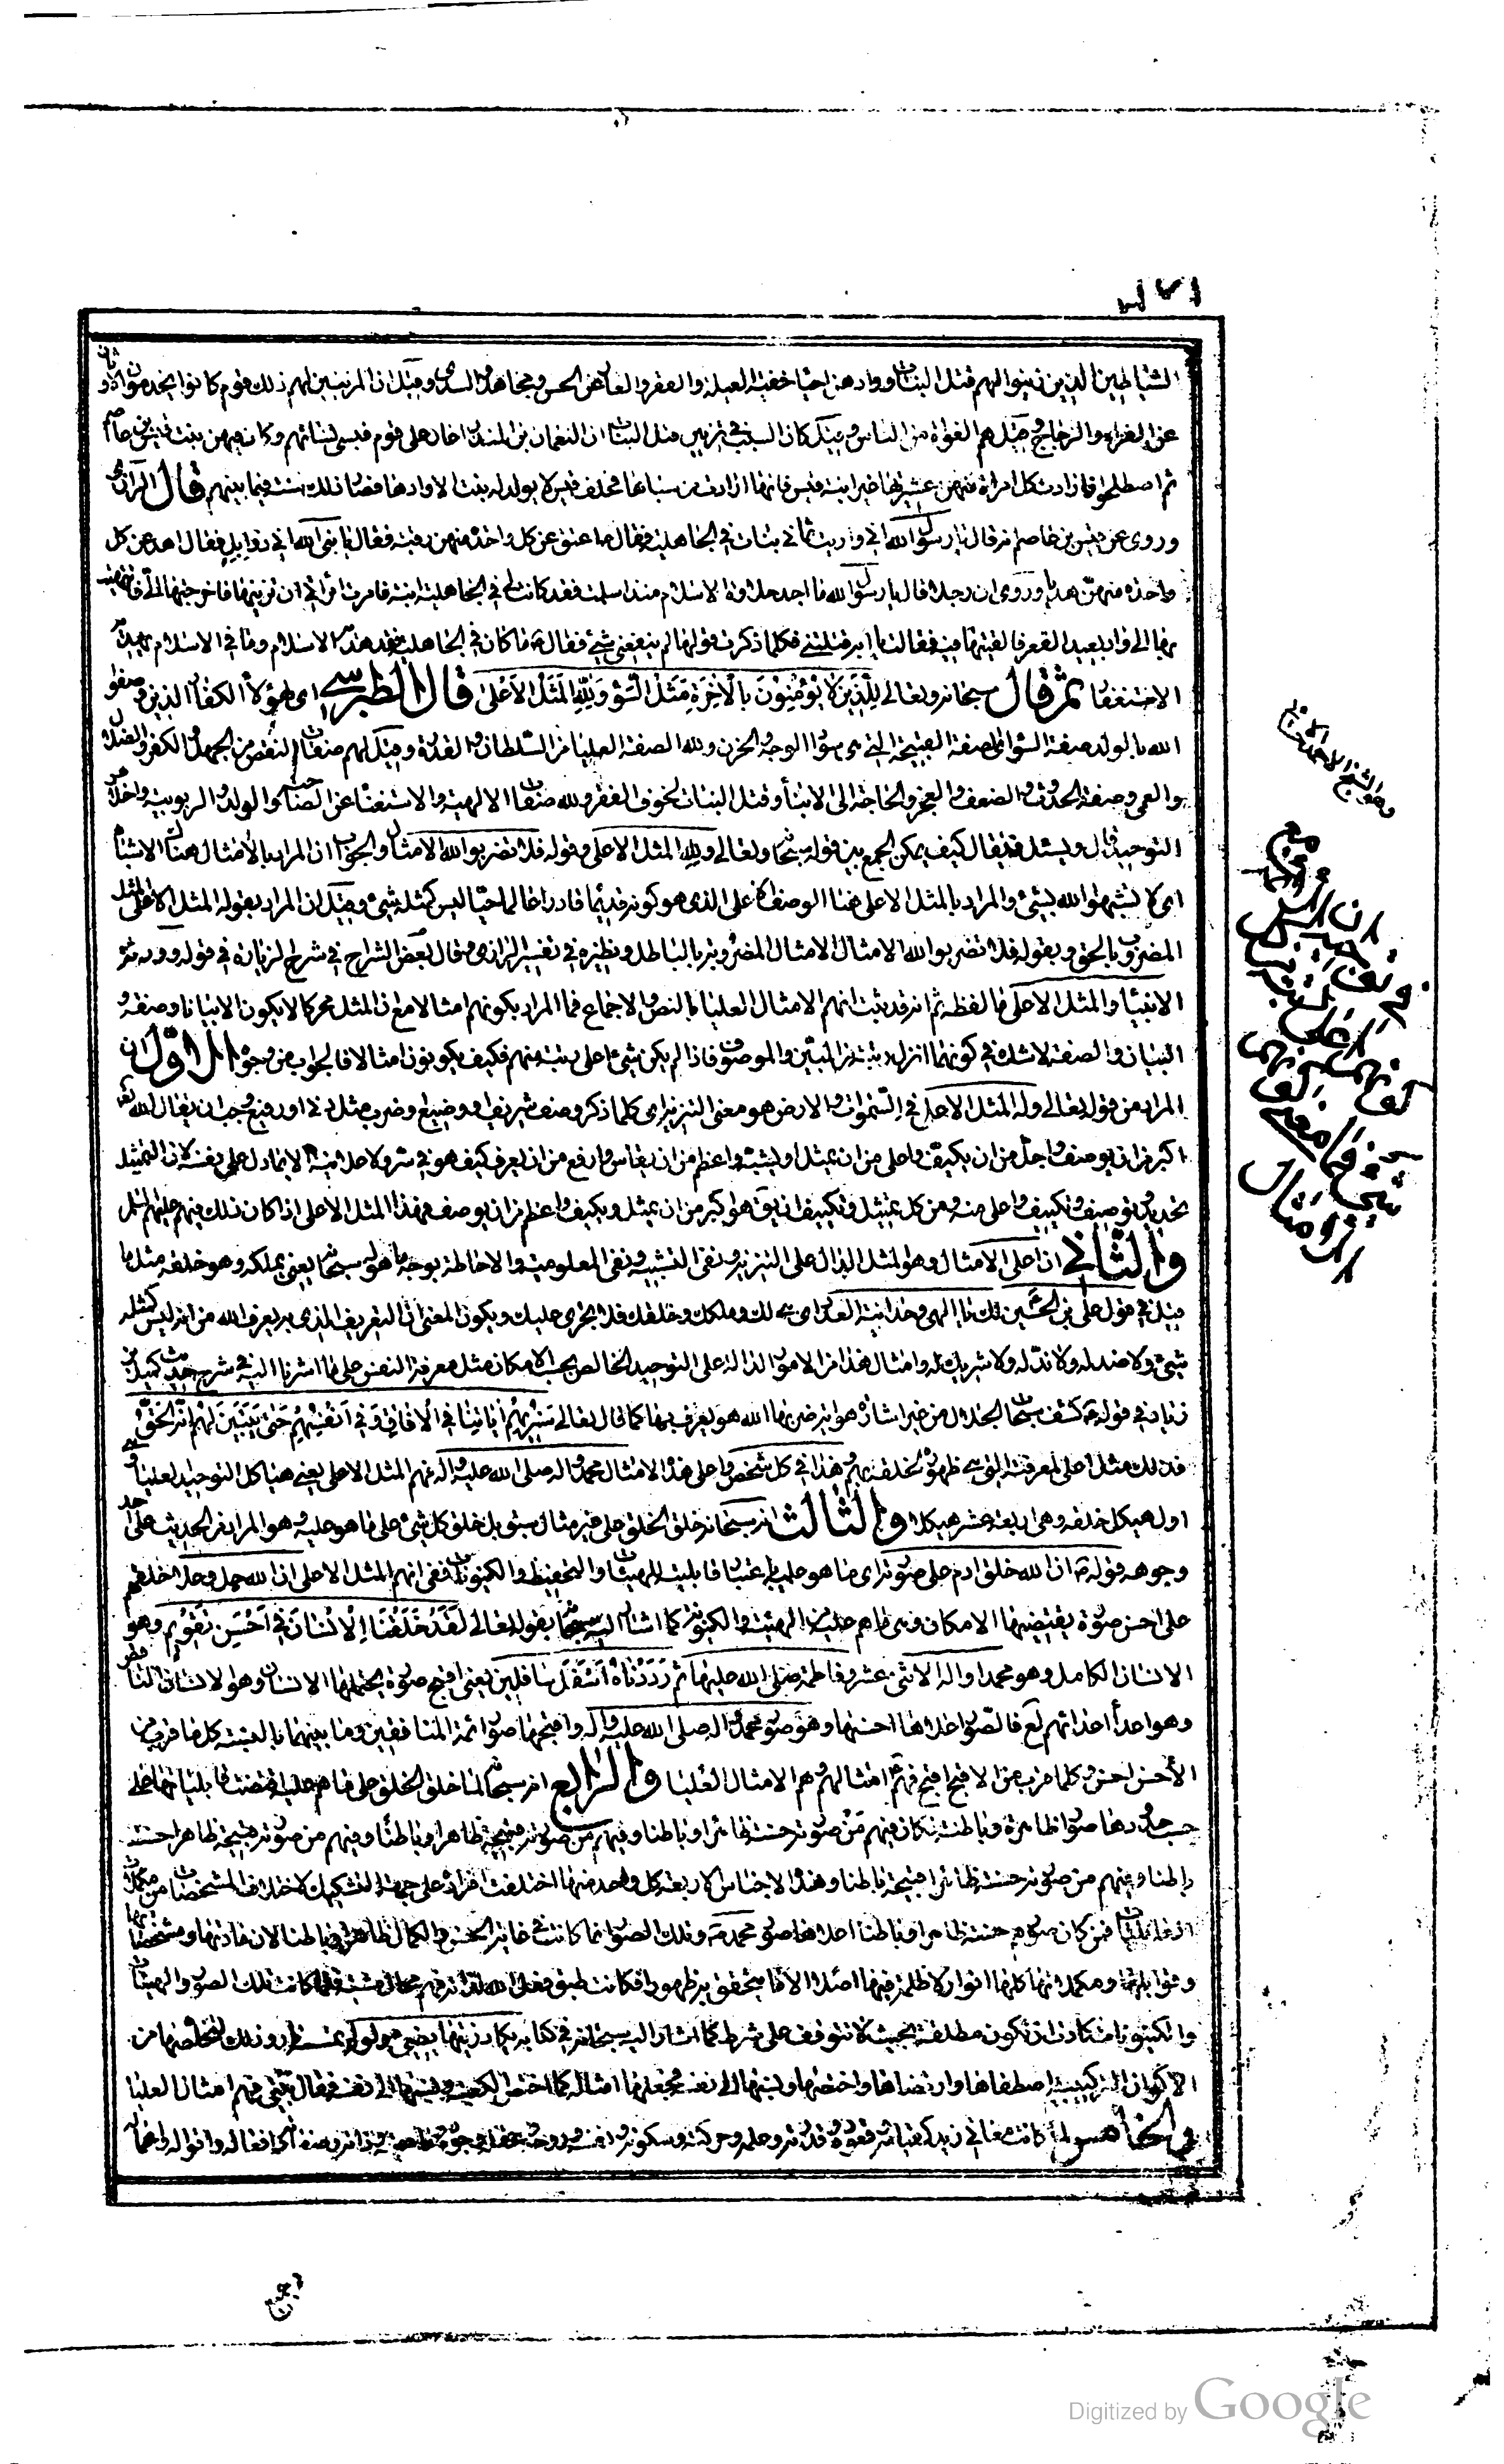 الشياطين الذين زينوا لهم قتل البنات ووادهن احياء خفية العيلة والفقر والعار عن الحسن ومجاهد والسدى وقيل ان المزينين لهم ذلك قوم كانوا يخدمون الاوثان
عن الفراء والزجاج وقيل هم الغواة من الناس وقيل كان السبب فى تزيين قتل البنات ان النعمان بن المنذر اغار على قوم فسبى نسائهم وكان فيهن بنت قيس بن عاصم
ثم اصطلحوا فارادت كل امراة منهن عشيرتها غير ابنة قيس فانها ارادت من سباها فحلف قيس لا يولد له بنت الا وادها فصار ذلك سنة فيما بينهم قال الرازى
وروى عن قيس بن عاصم انه قال يا رسول الله انى واريت ثمانى بنات فى الجاهلية فقال ص اعتق عن كل واحدة منهن رقبة فقال يا نبى الله انى ذو ابل فقال اهد عن كل
واحدة منهن هديا وروى ان رجلا قال يا رسول الله ما اجد حلاوة الاسلام منذ اسلمت فقد كانت لى فى الجاهلية ابنة فامرت امراتى ان تزينها فاخرجتها الى فانتهيت
بها الى واد بعيد القعر فالقيتها فيه فقالت يا ابه قتلتنى فكلما ذكرت قولها لم ينفعنى شيئ فقال ص ما كان فى الجاهلية فقد هدمه الاسلام وما فى الاسلام يهدمه
الاستغفار ثم قال سبحانه وتعالى للذين لا يؤمنون بالآخرة مثل السوء ولله المثل الاعلى قال الطبرسى اى لهؤلاء الكفار الذين وصفوا
الله بالولد صفة السواى الصفة القبيحة التى هى سواد الوجه والحزن ولله الصفة العليا من السلطان والقدرة وقيل لهم صفات النقص من الجهل والكفر والضلال
والعمى وصفة الحدوث والضعف والعجز والحاجة الى الابناء وقتل البنات لخوف الفقر ولله صفات الالهية والاستغناء عن الصاحبة والولد والربوبية واخلاص
التوحيد قال ويسئل فيقال كيف يمكن الجمع بين قوله سبحانه وتعالى ولله المثل الاعلى وقوله فلا تضربوا لله الامثال والجواب ان المراد بالامثال هناك الاشباه
اى لا تشبهوا الله بشئ والمراد بالمثل الاعلى هنا الوصف الاعلى الذى هو كونه قديما قادرا عالما حيا ليس كمثله شئ وقيل ان المراد بقوله المثل الاعلى المثل
المضروب بالحق وبقوله فلا تضربوا لله الامثال الامثال المضروبة بالباطل ونظيره فى تفسير الرازى وقال بعض الشراح فى شرح الزيارة فى قوله وورثة
الانبياء والمثل الاعلى ما لفظه ثم انه قد ثبت انهم الامثال العليا بالنص والاجماع فما المراد بكونهم امثالا مع ان المثل محركا لا يكون الا بيانا وصفة و
البيان والصفة لا شك فى كونهما انزل رتبة من المبين والموصوف فاذا لم يكن شئ اعلى رتبة منهم فكيف يكونون امثالا فالجواب من وجوه الاول ان
المراد من قوله تعالى وله المثل الاعلى فى السموات والارض هو معنى التنزيه اى كلما ذكر وصف شريف ووضيع وضرب مثل دنى او رفيع وجب ان يقال الله تعالى
اكبر من ان يوصف واجل من ان يكيف واعلى من ان يمثل او يشبه واعظم من ان يقاس وارفع من ان يعرف كيف هو فى سر ولا علانية الا بما دل على نفسه لان التمثيل
تحديد وتوصيف وتكييف واعلى منه ومن كل تمثيل وتكييف ان يق هو اكبر من ان يمثل ويكيف واعظم من ان يوصف فهذا المثل الاعلى اذا كان ذلك فيهم عليهم السلم
والثانى ان اعلى الامثال وهو المثل الدال على التنزيه ونفى التشبيه ونفى المعلومية والاحاطة بوجه ما هو له سبحانه يعنى بملكه وهو خلقه مثل ما
قيل فى قول على بن الحسين لك يا الهى وحدانية العدد اى هى لك وملكك وخلقك فلا تجرى عليك ويكون المعنى ان التعريف الذى به يعرف الله من انه ليس كمثله
شئ ولا ضد له ولا ند له ولا شريك له وامثال هذا من الامور الدالة على التوحيد الخالص بحسب الامكان مثل معرفة النفس على ما اشرنا اليه فى شرح حديث كميل بن
زياد فى قوله ع كشف سبحات الجلال من غير اشارة هو اية ضربها الله هو يعرف بها كما قال تعالى سنريهم آياتنا فى الآفاق وفى انفسهم حتى يتبين لهم انه الحق
فذلك مثل اعلى لمعرفته التى هى ظهوره لخلقه بهم وهذا فى كل شخص واعلى هذه الامثال محمد واله صلى الله عليه واله فهم المثل الاعلى يعنى هياكل التوحيد العليا وهى
اول هيكل خلقه وهى اربعة عشر هيكلا والثالث انه سبحانه خلق الخلق على غير مثال سبق بل خلق كل شئ على ما هو عليه وهو المراد من الحديث على احد
وجوهه قوله ع ان الله خلق ادم على صورته اى ما هو عليه باعتبار قابلية الهيئات والتخطيط والكينونات فمعنى انهم المثل الاعلى ان الله عز وجل خلقهم
على احسن صورة يقتضيها الامكان وهى ما هم عليه من الهيئة والكينونة كما اشار اليه سبحانه بقوله تعالى لقد خلقنا الانسان فى احسن تقويم وهو
الانسان الكامل وهو محمد واله الاثنى عشر وفاطمة صلى الله عليها ثم رددناه اسفل سافلين يعنى اقبح صورة يحتملها الانسان وهو الانسان الناقص
وهو اعداء اعدائهم لع فالصور اعلاها احسنها وهو صورة محمد واله صلى الله عليه واله واقبحها صور ائمة المنافقين وما بينهما بالنسبة كل ما قرب من
الاحسن احسن وكلما قرب من الاقبح اقبح فهم ع امثالهم وهم الامثال العليا والرابع انه سبحانه لما خلق الخلق على ما هم عليه اقتضت قابلياتها على
حسب حدودها صورا ظاهرة وباطنة فكان فيهم من صورته حسنة ظاهرا وباطنا وفيهم من صورته قبيحة ظاهرا وباطنا وفيهم من صورته قبيحة ظاهرا حسنة
باطنا وفيهم من صورته حسنة ظاهرا قبيحة باطنا وهذه الاجناس الاربعة كل واحد منها اختلفت افراده على جهة التشكيك لاختلاف المشخصات من مكملات
القابليات فمن كان صورهم حسنة ظاهرا وباطنا اعلاها صورة محمد ص وتلك الصور انما كانت فى غاية الحسن والكمال ظاهرا وباطنا لان مادتها ومشخصاتها
وقوابلها ومكملاتها كلها انوار لا ظلمة فيها اصلا الا ما يتحقق به ظهورها فكانت طبق فعل الله لذاته فهم محال مشيته فلما كانت تلك الصور والهيئات
والكينونات كادت ان تكون مطلقة بحيث لا تتوقف على شرط كما اشار اليه سبحانه فى كتابه يكاد زيتها يضيئ ولو لم تمسسه نار وذلك لتخلصها من
الاكوان التركيبية اصطفاها وارتضاها واختصها ونسبها الى نفسه فجعلها امثاله كما اختص الكعبة ونسبها الى نفسه فقال بيتى فهم امثال العليا
والخامس لما كانت معانى زيد كقيامه وقعوده وقدرته وعلمه وحركته وسكونه
وهو الشيخ الاحمد الاحسائى